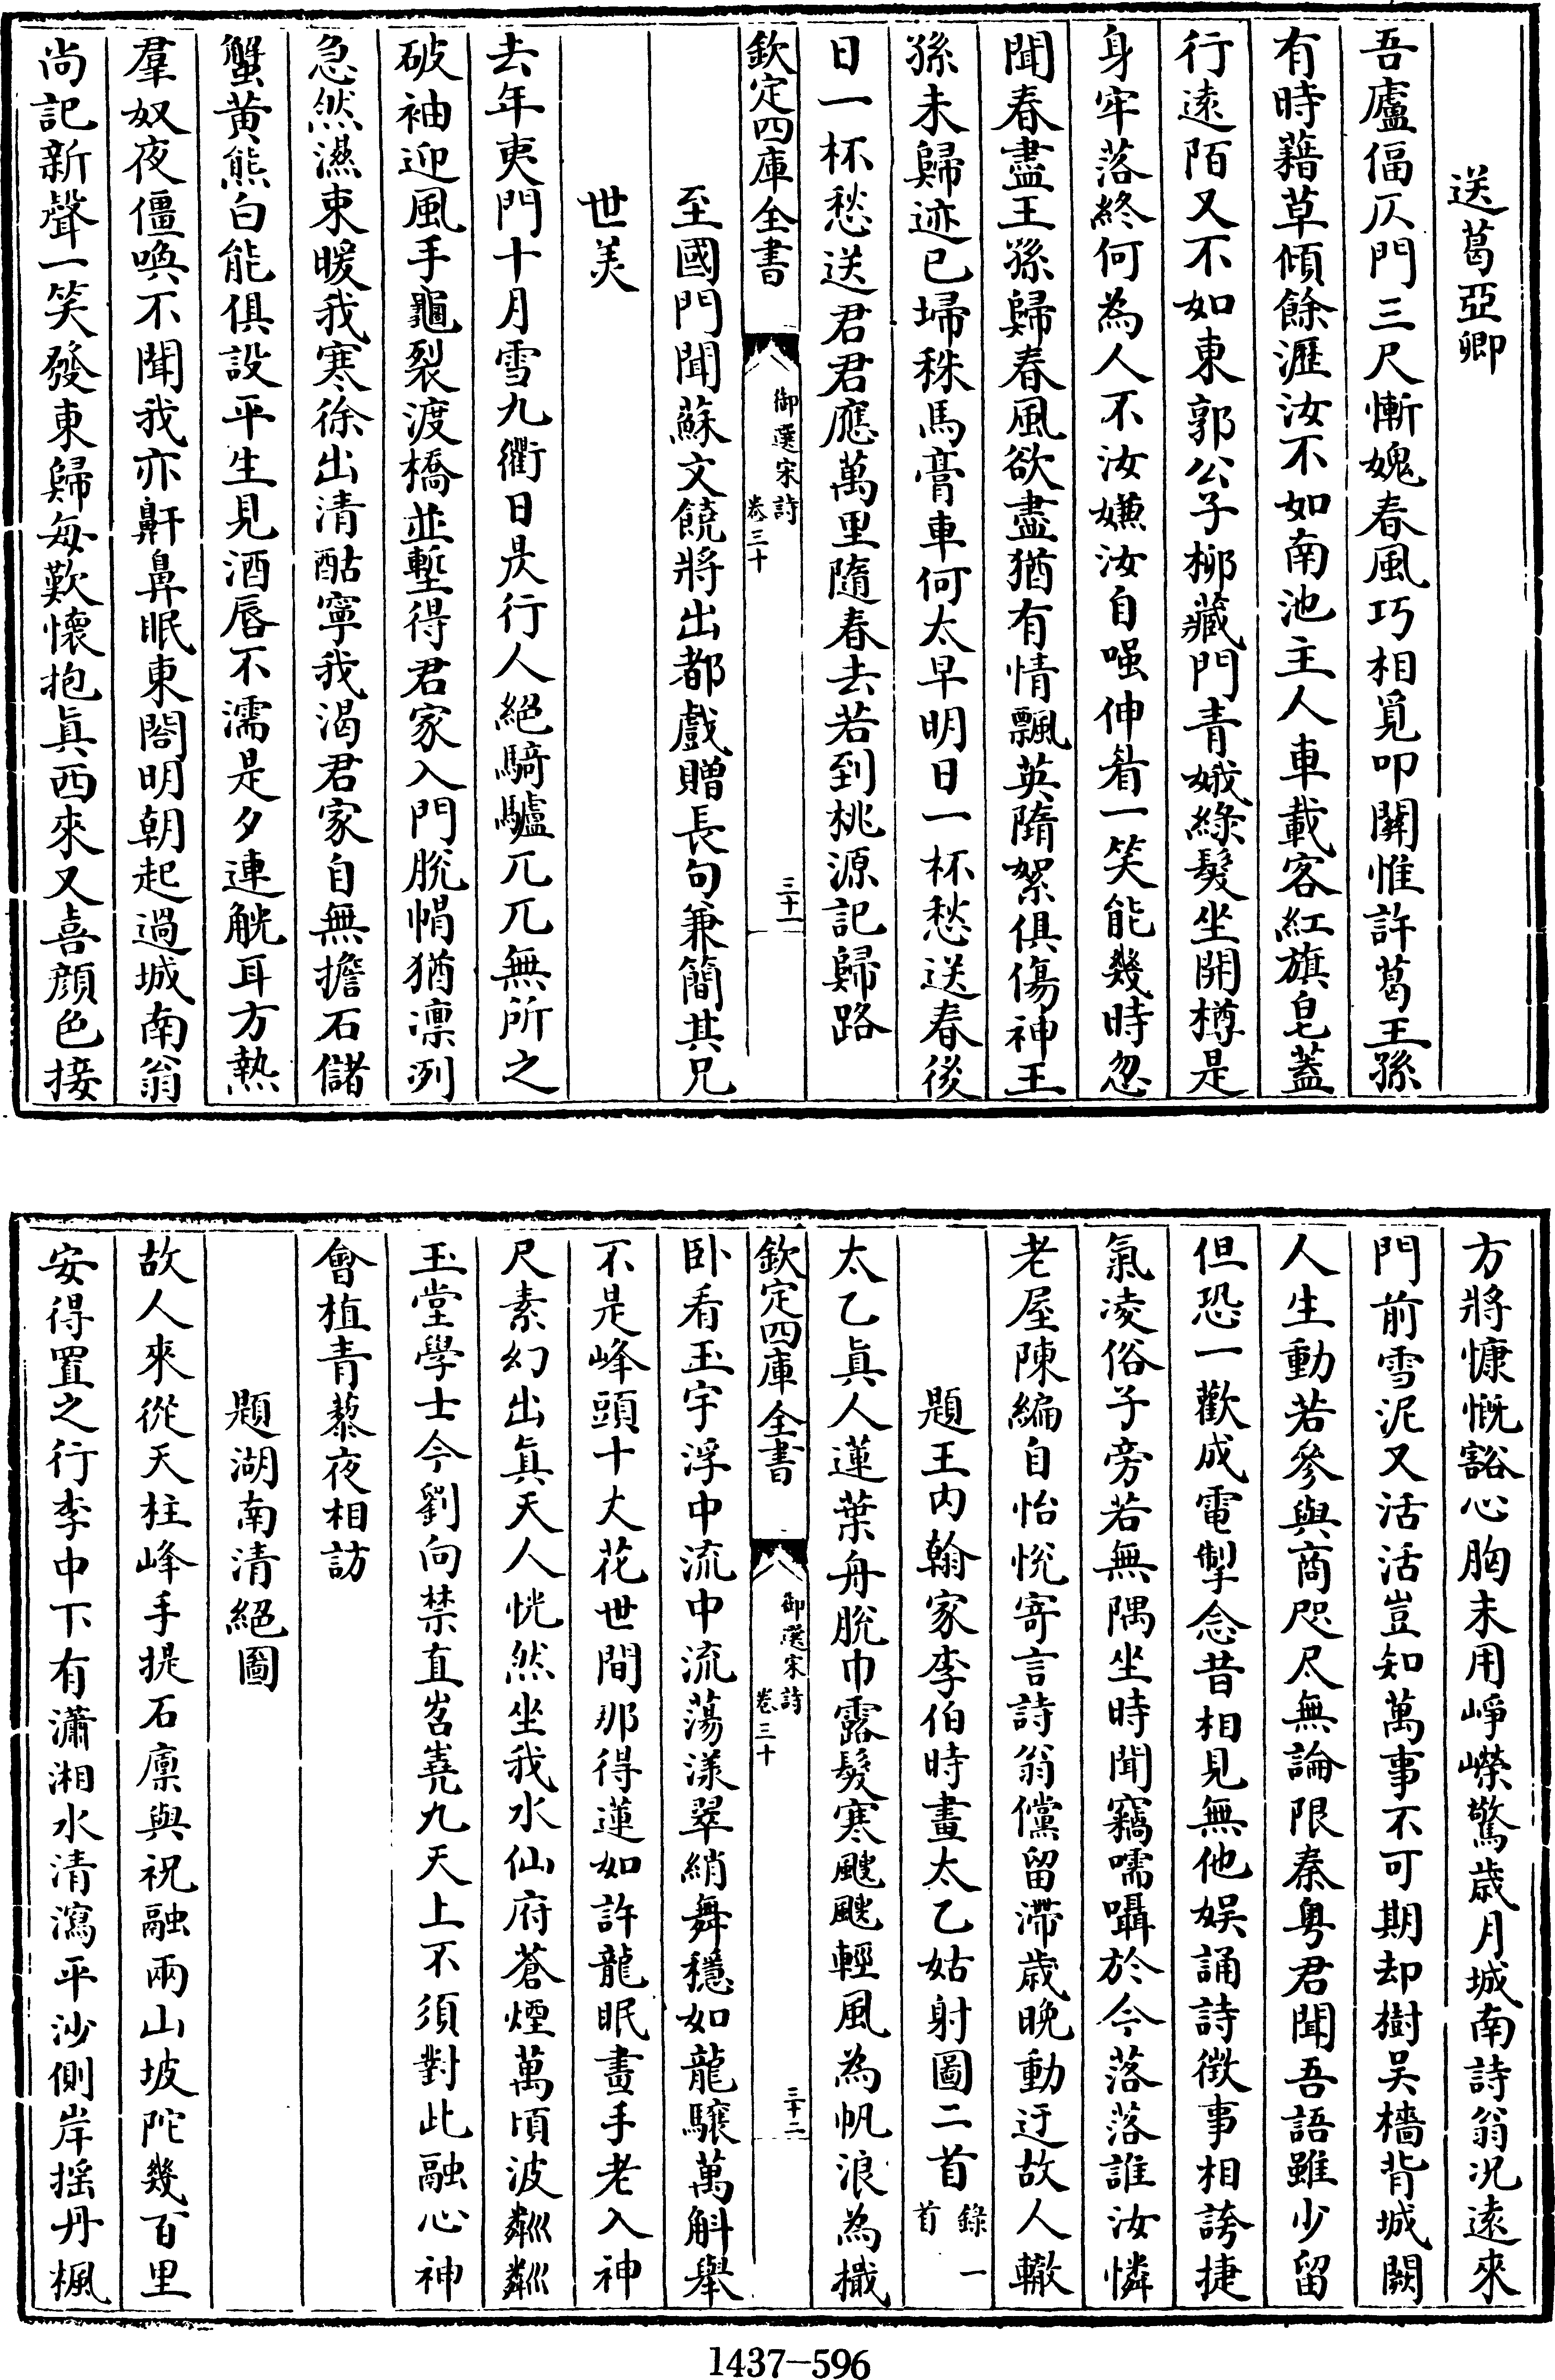 送葛亞卿
吾廬偪仄門三尺慚媿春風巧相覓叩關惟許葛王孫
有時藉草傾餘瀝汝不如南池主人車載客紅旗皂蓋
行遠陌又不如東郭公子栁藏門青娥綠髮坐開樽是
身牢落終何為人不汝嫌汝自嗤伸眉一笑能幾時忽
聞春盡王孫歸春風欲盡猶有情飄英隨絮俱傷神王
孫未歸迹已埽秣馬膏車何太早明日一杯愁送春後
日一杯愁送君君應萬里隨春去若到桃源記歸路
欽定四庫全書
御選宋詩
卷三十
三十一
至國門聞蘇文饒將出都戲贈長句兼簡其兄
世美
去年夷門十月雪九衢日昃行人絕騎驢兀兀無所之
破袖迎風手龜裂渡橋並塹得君家入門脫帽猶凛冽
急然濕束暖我寒徐出清酤寧我渴君家自無擔石儲
蟹黄熊白能俱設平生見酒唇不濡是夕連觥耳方熱
羣奴夜僵喚不聞我亦鼾鼻眠東閤明朝起過城南翁
尚記新聲一笑發東歸每歎懷抱眞西來又喜顔色接
方將慷慨豁心胸未用崢嶸驚歲月城南詩翁況遠來
門前雪泥又活活豈知萬事不可期却樹吳檣背城闕
人生動若參與商咫尺無論限秦粤君聞吾語雖少留
但恐一歡成電掣念昔相見無他娱誦詩徴事相誇捷
氣凌俗子旁若無隅坐時聞竊嚅囁於今落落誰汝憐
老屋陳編自怡悅寄言詩翁儻留滯歲晚動迂故人轍
題王内翰家李伯時畫太乙姑射圖二首錄一首
太乙眞人蓮葉舟脫巾露髮寒飕飕輕風為帆浪為檝
欽定四庫全書
御選宋詩
卷三十
三十二
卧看玉宇浮中流中流蕩漾翠綃舞穩如龍驤萬斛舉
不是峰頭十丈花世間那得蓮如許龍眠畫手老入神
尺素幻出眞天人恍然坐我水仙府蒼煙萬頃波粼粼
玉堂學士今劉向禁直岧嶤九天上不須對此融心神
會植青藜夜相訪
題湖南清絕圖
故人來從天柱峰手提石廪與祝融兩山坡陀幾百里
安得置之行李中下有瀟湘水清瀉平沙側岸揺丹楓
1437-596